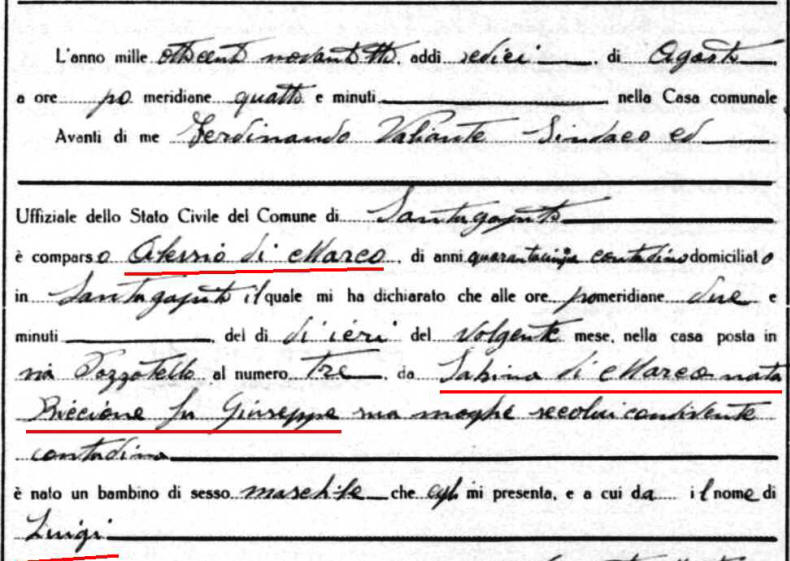 L'anno mille ottocento novantotto, addi sedici, di Agosto,
a ore po meridiane quattro e minuti nella Casa comunale
Avanti di me Ferdinando Valiante Sindaco ed
Uffiziale dello Stato Civile del Comune di Santagapito
è comparso Alessio di Marco, di anni quarantacinque contadino domiciliato
in Santagapito il quale mi ha dichiarato che alle ore pomeridiane due e
minuti, del di di ieri del volgente mese, nella casa posta in
via Pozzotello al numero tre, da Sabina di Marco nata
Riccione fu Giuseppe sua moglie secolui convivente
contadina
è nato un bambino di sesso maschile che egli mi presenta, e a cui da il nome di
Luigi